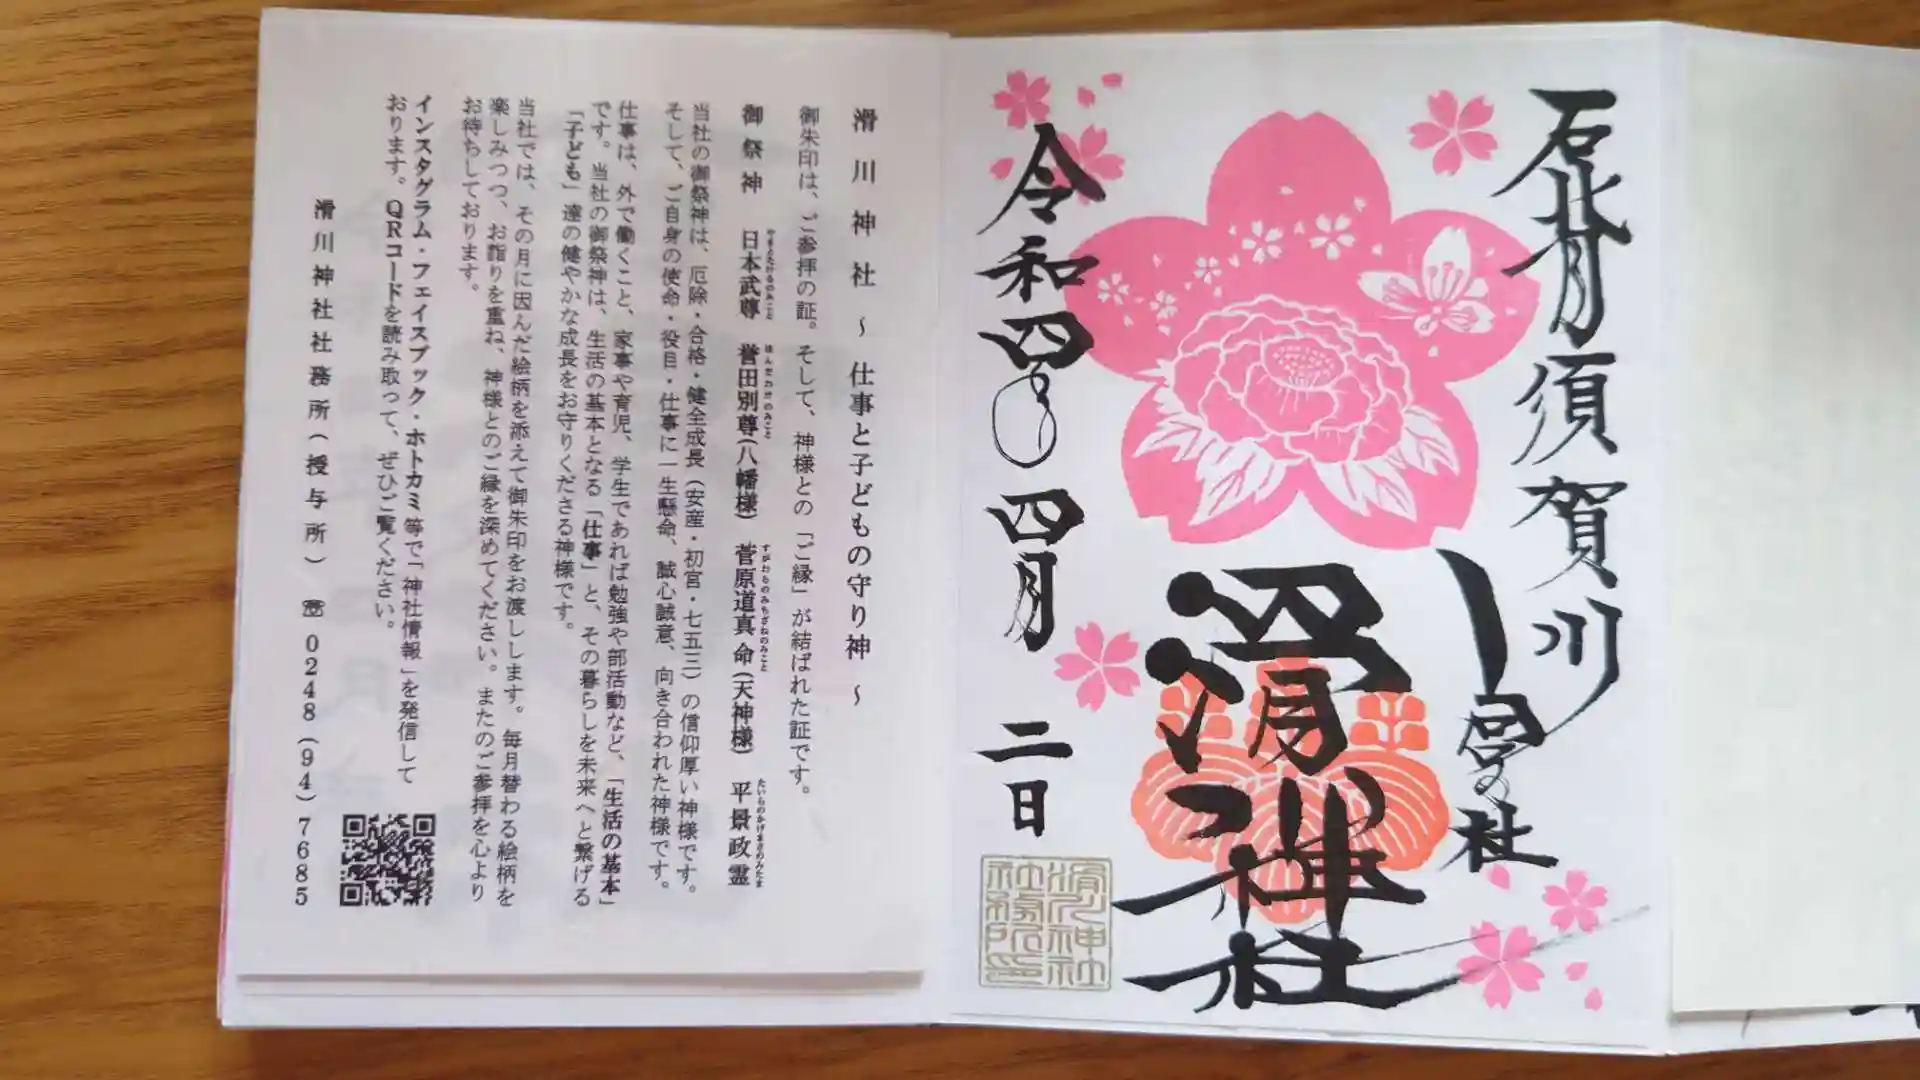 石背
須賀川
滑川神社
宮社
令和四年
四月
二日
滑川神社
社務所印
滑川神社 ~ 仕事と子どもの守り神 ~
御朱印は、ご参拝の証。そして、神様との「ご縁」が結ばれた証です。
御祭神 日本武尊 誉田別尊(八幡様) 菅原道真命(天神様) 平景政霊
やまとたけるのみこと ほんだわけのみこと すがわらのみちざねのみこと たいらのかげまさのみたま
当社の御祭神は、厄除・合格・健全成長(安産・初宮・七五三)の信仰厚い神様です。
そして、ご自身の使命・役目・仕事に一生懸命、誠心誠意、向き合われた神様です。
仕事は、外で働くこと、家事や育児、学生であれば勉強や部活動など、「生活の基本」
です。当社の御祭神は、生活の基本となる「仕事」と、その暮らしを未来へと繋げる
「子ども」達の健やかな成長をお守りくださる神様です。
当社では、その月に因んだ絵柄を添えて御朱印をお渡しします。毎月替わる絵柄を
楽しみつつ、お詣りを重ね、神様とのご縁を深めてください。またのご参拝を心より
お待ちしております。
インスタグラム・フェイスブック・ホトカミ等で「神社情報」を発信して
おります。QRコードを読み取って、ぜひご覧ください。
滑川神社社務所(授与所) ☏ 0248(94)7685